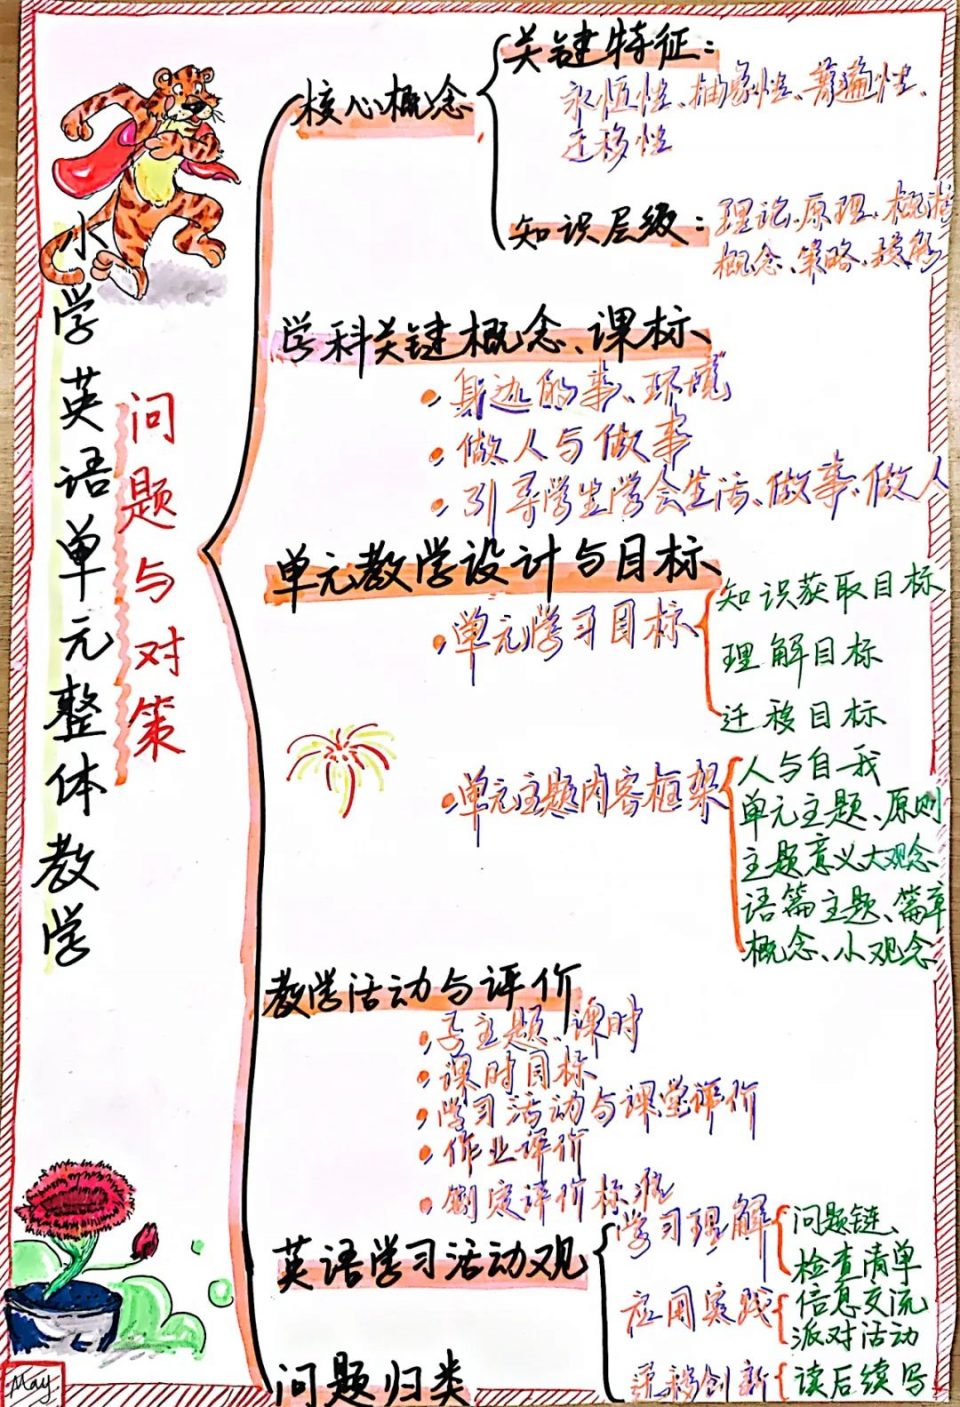 小学英语单元整体教学
问题与对策
核心概念
关键特征：
永恒性、抽象性、普遍性、
迁移性
知识层级：
理论、原理、概括
概念、策略、技能
学科关键概念、课标
·身边的事、环境
·做人与做事
·引导学生学会生活、做事、做人
单元教学设计与目标
·单元学习目标
知识获取目标
理解目标
迁移目标
·单元主题内容框架
人与自我
单元主题、原则
主题意义大观念
语篇主题、篇章
概念、小观念
教学活动与评价
·子主题、课时
·课时目标
·学习活动与课堂评价
·作业评价
·制定评价标准
英语学习活动观
学习理解
问题链、
检查清单
应用实践
信息交流
派对活动
迁移创新
读后续写
问题归类
May